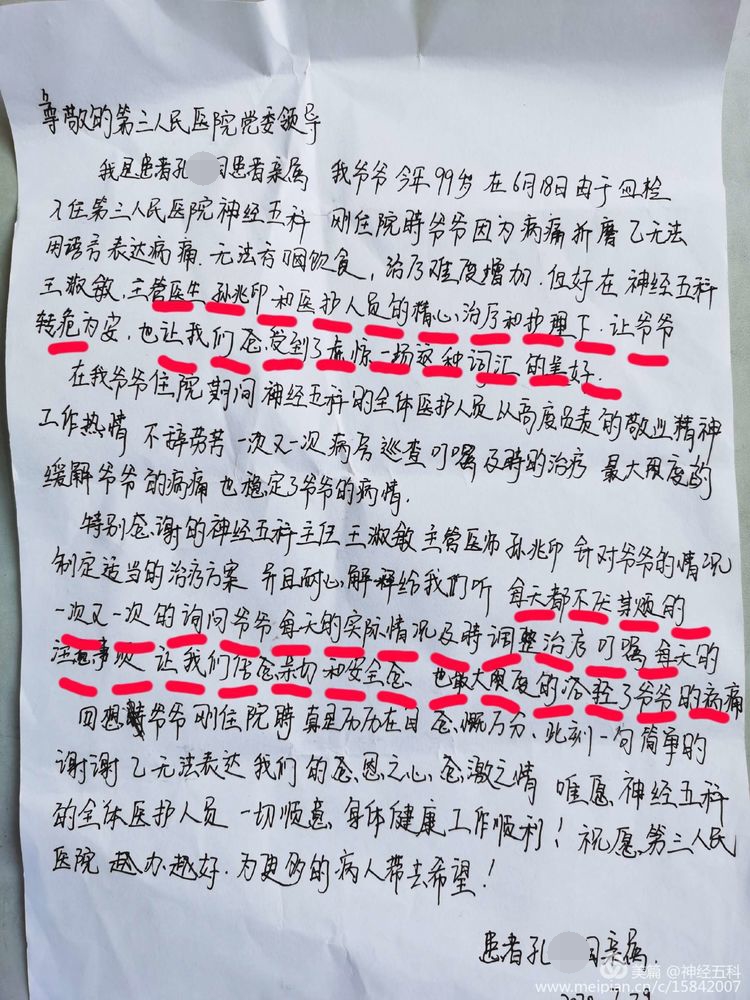 尊敬的第三人民医院党委领导
我是患者孔 同患者亲属 我爷爷今年99岁 在6月18日由于血栓
入住第三人民医院神经五科 刚住院时爷爷因为病痛折磨已无法
用语言表达病痛.无法吞咽饮食,治疗难度增加.但好在神经五科
王淑敏,主管医生孙兆印和医护人员的精心治疗和护理下.让爷爷
转危为安,也让我们感受到了虚惊一场这种词汇的美好.
在我爷爷住院期间神经五科的全体医护人员从高度负责的敬业精神
工作热情 不辞劳苦一次又一次病房巡查叮嘱及时的治疗 最大限度的
缓解爷爷的病痛也稳定了爷爷的病情.
特别感谢的神经五科主任王淑敏主管医师孙兆印针对爷爷的情况
制定适当的治疗方案 并且耐心解释给我们听 每天都不厌其烦的
一次又一次的询问爷爷每天的实际情况及时调整治疗叮嘱每天的
注意事项 让我们倍感亲切和安全感、也最大限度的减轻了爷爷的病痛
回想爷爷刚住院时真是历历在目感慨万分、此刻一句简单的
谢谢已无法表达我们的感恩之心、感激之情 唯愿神经五科
的全体医护人员 一切顺意、身体健康工作顺利!祝愿第三人民
医院越办越好.为更多的病人带去希望!
患者孔 同亲属.
美篇 @神经五科
www.meipian.cn/c/15842007